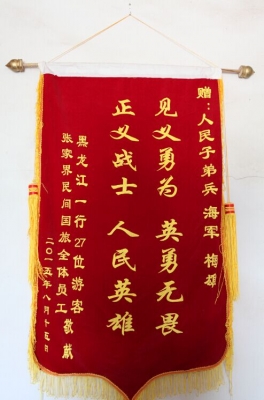 赠：人民子弟兵 海军 梅雄
见义勇为 英勇无畏
正义战士 人民英雄
黑龙江一行27位游客
张家界民间国旅全体员工 敬献
二〇一五年八月十五日